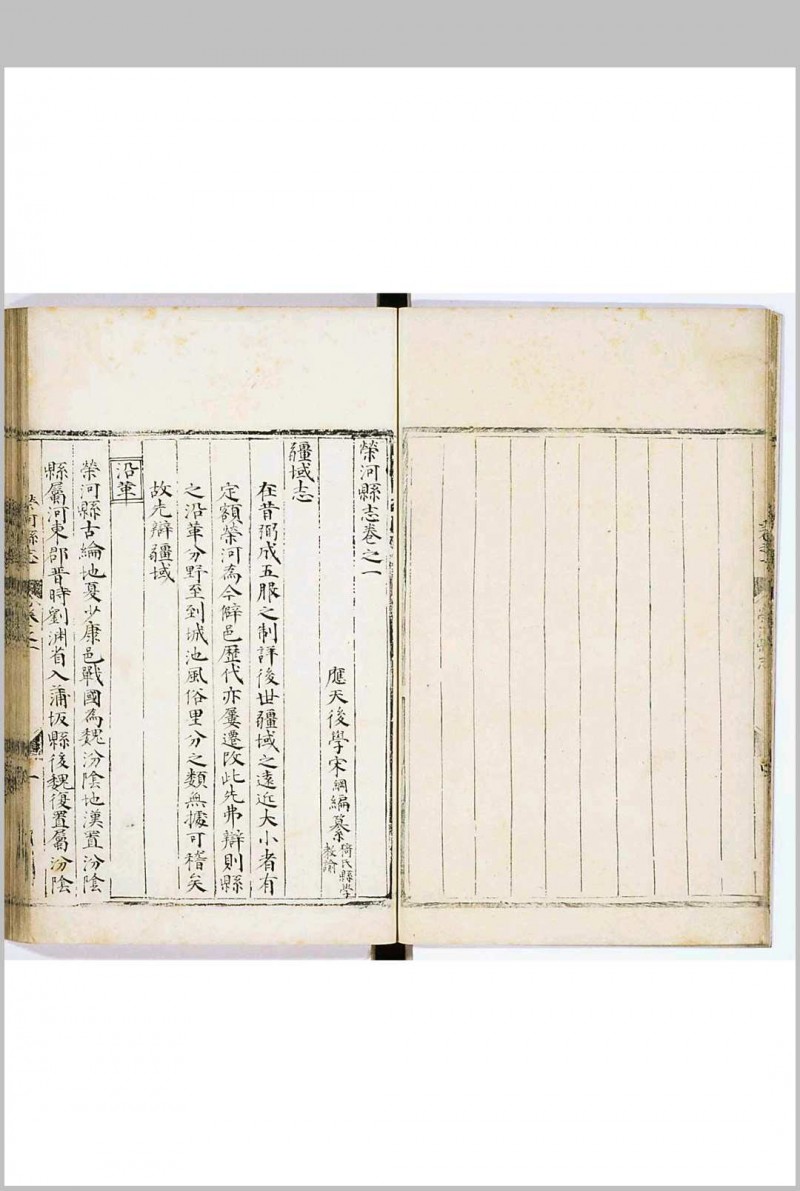 榮河縣志卷之一
應天後學宋綱編纂猗氏縣學教諭
疆域志
在昔弼成五服之制詳後世疆域之遠近大小者有
定額榮河為今僻邑歷代亦屢遷改此先弗辯則縣
之沿革分野至到城池風俗里分之類無據可稽矣
故先辯疆域
沿革
榮河縣古綸地夏少康邑戰國為魏汾陰地漢置汾陰
縣屬河東郡晋時劉淵省入蒲坂縣後魏復置屬汾陰
榮河縣志 卷之一 一